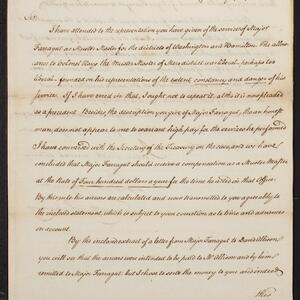 Sir,
I have attended to the representation you have given of the services of Major
Farragut as Muster Master for the districts of Washington and Hamilton. The allow-
ance to Colonel King the Muster Master of Mero district was liberal - perhaps too
liberal - founded on his representations of the extent, constancy and danger of his
service. If I have erred in that, I ought not to repeat it altho it is now pleaded
as a precedent. Besides, the description you give of Major Farragut, tho an honest
man, does not appear to me to warrant high pay for the services he performed
I have conversed with the Secretary of the Treasury on the case, and we have
concluded that Major Farragut should receive a compensation as a Muster Master
at the rate of Four hundred dollars a year for the time he acted in that Office.
By this rule his arrears are calculated and now transmitted to you agreeably to
the inclosed statement, which is subject to your correction as to time and advances
on account.
By the inclosed extract of a letter from Major Farragut to David Allison
you will see that the arrears were intended to be paid to Mr Allison and by him
remitted to Major Farragut. but I chose to send the money to you and indeed